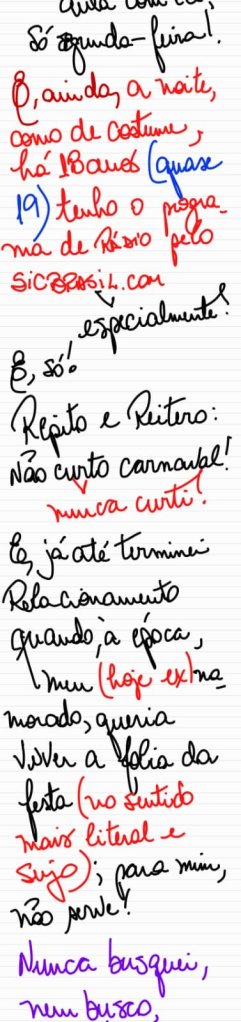 aula com
só segunda-feira!
E, ainda, a noite,
como de costume,
há 18 anos (quase
19) tenho o progra-
ma de Rádio pelo
SICBRASIL.com
especialmente!
E, só!
Repito e Reitero:
Não curto carnaval!
nunca curti!
E, já até terminei
Relacionamento
quando, à época,
meu (hoje ex) na-
morado, queria
viver a folia da
festa (no sentido
mais literal e
sujo); para mim,
não serve!
Nunca busquei,
nem busco,